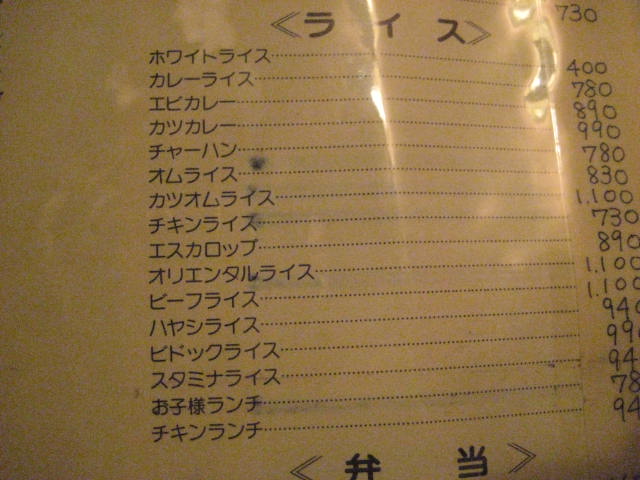 730
≪ライス≫
ホワイトライス 400
カレーライス 780
エビカレー 890
カツカレー 990
チャーハン 780
オムライス 830
カツオムライス 1,100
チキンライス 730
エスカロップ 890
オリエンタルライス 1,100
ビーフライス 1,100
ハヤシライス 940
ビドックライス 990
スタミナライス 94
お子様ランチ 78
チキンランチ 94
≪弁当≫